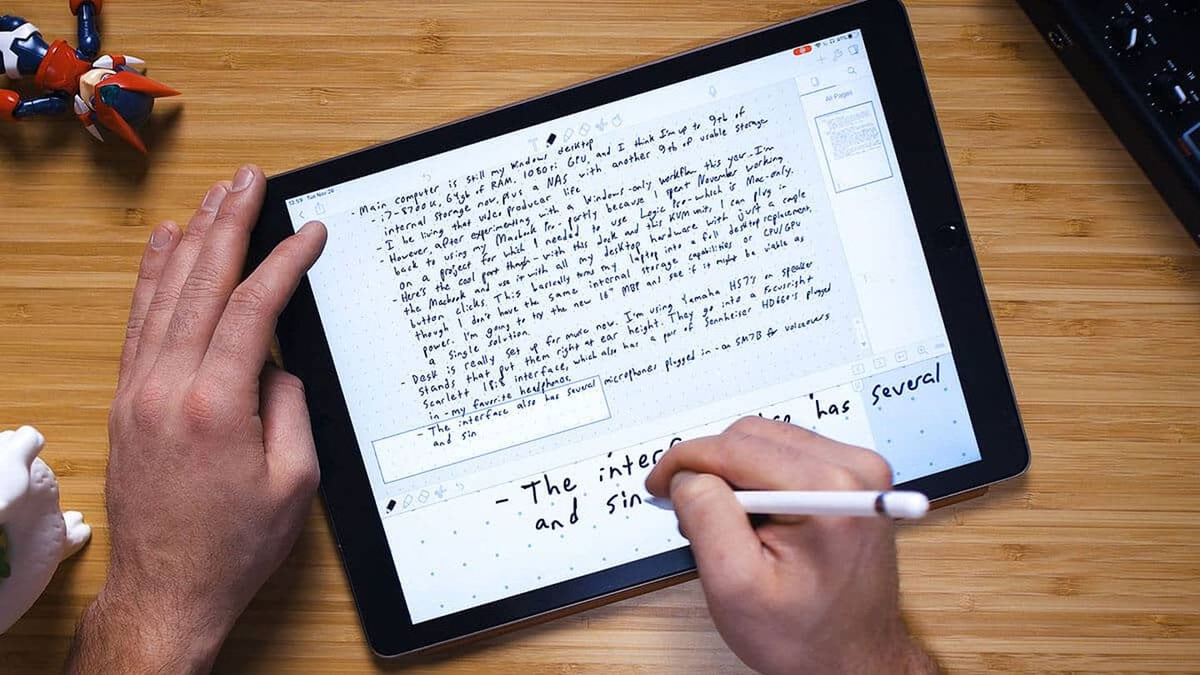 12:59 Tue Nov 26
All Pages
- Main computer is still my Windows desktop
- i7-8700K, 64gb of RAM, 1080ti GPU, and I think I'm up to 9tb of
internal storage now, plus a NAS with another 9tb of usable storage
- I be living that video producer life
- However, after experimenting with a Windows-only workflow this year, I'm
back to using my Macbook Pro - partly because I spent November working
on a project for which I needed to use Logic Pro - which is Mac-only.
- Here's the cool part though - with this dock and this KVM unit, I can plug in
the Macbook and use it with all my desktop hardware with just a couple
button clicks. This basically turns my laptop into a full desktop replacement,
though I don't have the same internal storage capabilities or CPU/GPU
power. I'm going to try the new 16" MBP and see if it might be viable as
a single solution.
- Desk is really set up for music now. I'm using Yamaha HS7's on speaker
stands that put them right at ear height. They go into a Focusright
Scarlett 18i8 interface, which also has a pair of Sennheiser HD660's plugged
in - my favorite headphones.
- The interface also has several microphones plugged in - an SM7B for voiceovers
and sin
- The interf has several
and sin